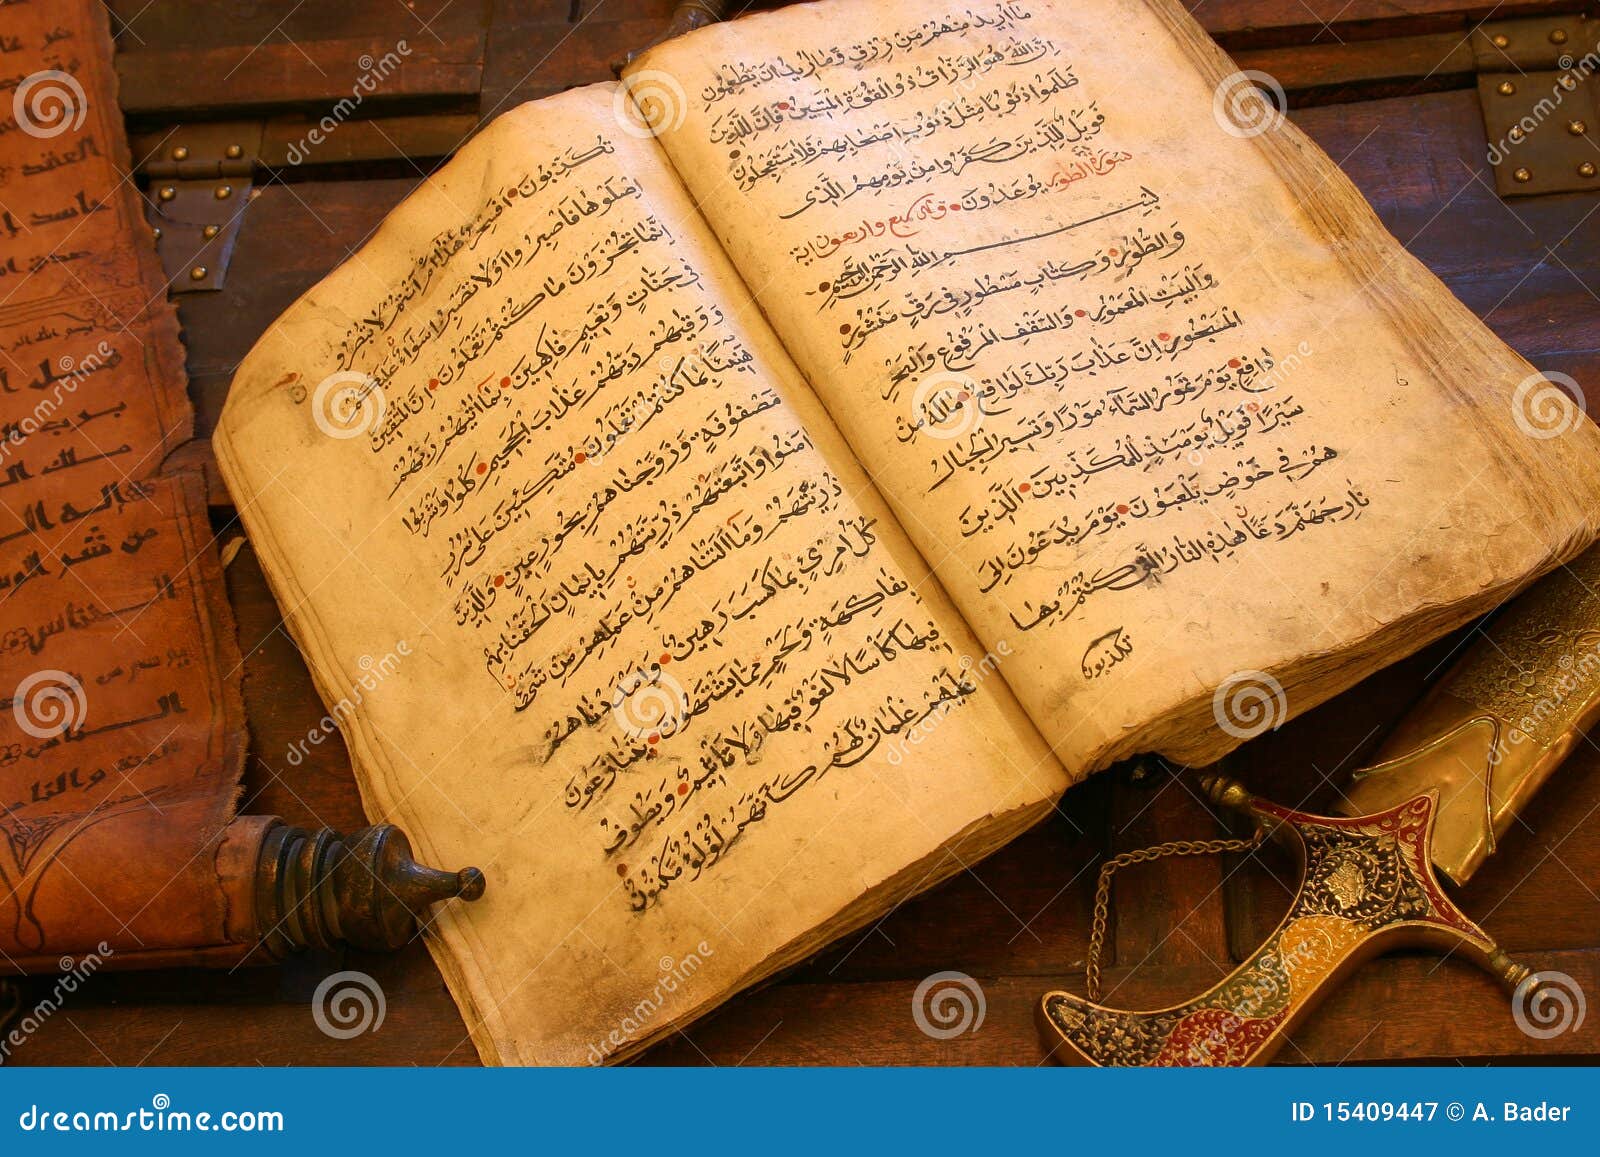 ما أريد منهم من رزق وما أريد أن يطعمون
إن الله هو الرزاق ذو القوة المتين فإن للذين
ظلموا ذنوبا مثل ذنوب أصحابهم فلا يستعجلون
فويل للذين كفروا من يومهم الذي
سورة الطور يوعدون وهي سبع واربعون اية
بسم الله الرحمن الرحيم
والطور وكتاب مسطور في رق منشور
والبيت المعمور والسقف المرفوع والبحر
المسجور إن عذاب ربك لواقع ما له من
دافع يوم تمور السماء مورا وتسير الجبال
سيرا فويل يومئذ للمكذبين الذين
هم في خوض يلعبون يوم يدعون إلى
نار جهنم دعا هذه النار التي كنتم بها
تكذبون
تكذبون أفسحر هذا أم أنتم لا تبصرون
اصلوها فاصبروا أو لا تصبروا سواء عليكم
إنما تجزون ما كنتم تعملون إن المتقين
في جنات ونعيم فاكهين بما آتاهم ربهم
ووقاهم ربهم عذاب الجحيم كلوا واشربوا
هنيئا بما كنتم تعملون متكئين على سرر
مصفوفة وزوجناهم بحور عين والذين
آمنوا واتبعتهم ذريتهم بإيمان ألحقنا بهم
ذريتهم وما ألتناهم من عملهم من شيء
كل امرئ بما كسب رهين وأمددناهم
بفاكهة ولحم مما يشتهون يتنازعون
فيها كأسا لا لغو فيها ولا تأثيم ويطوف
عليهم غلمان لهم كأنهم لؤلؤ مكنون
العقد
حاسد
برب
ملك
إله
من شر
الناس
dreamstime.com
ID 15409447 © A. Bader